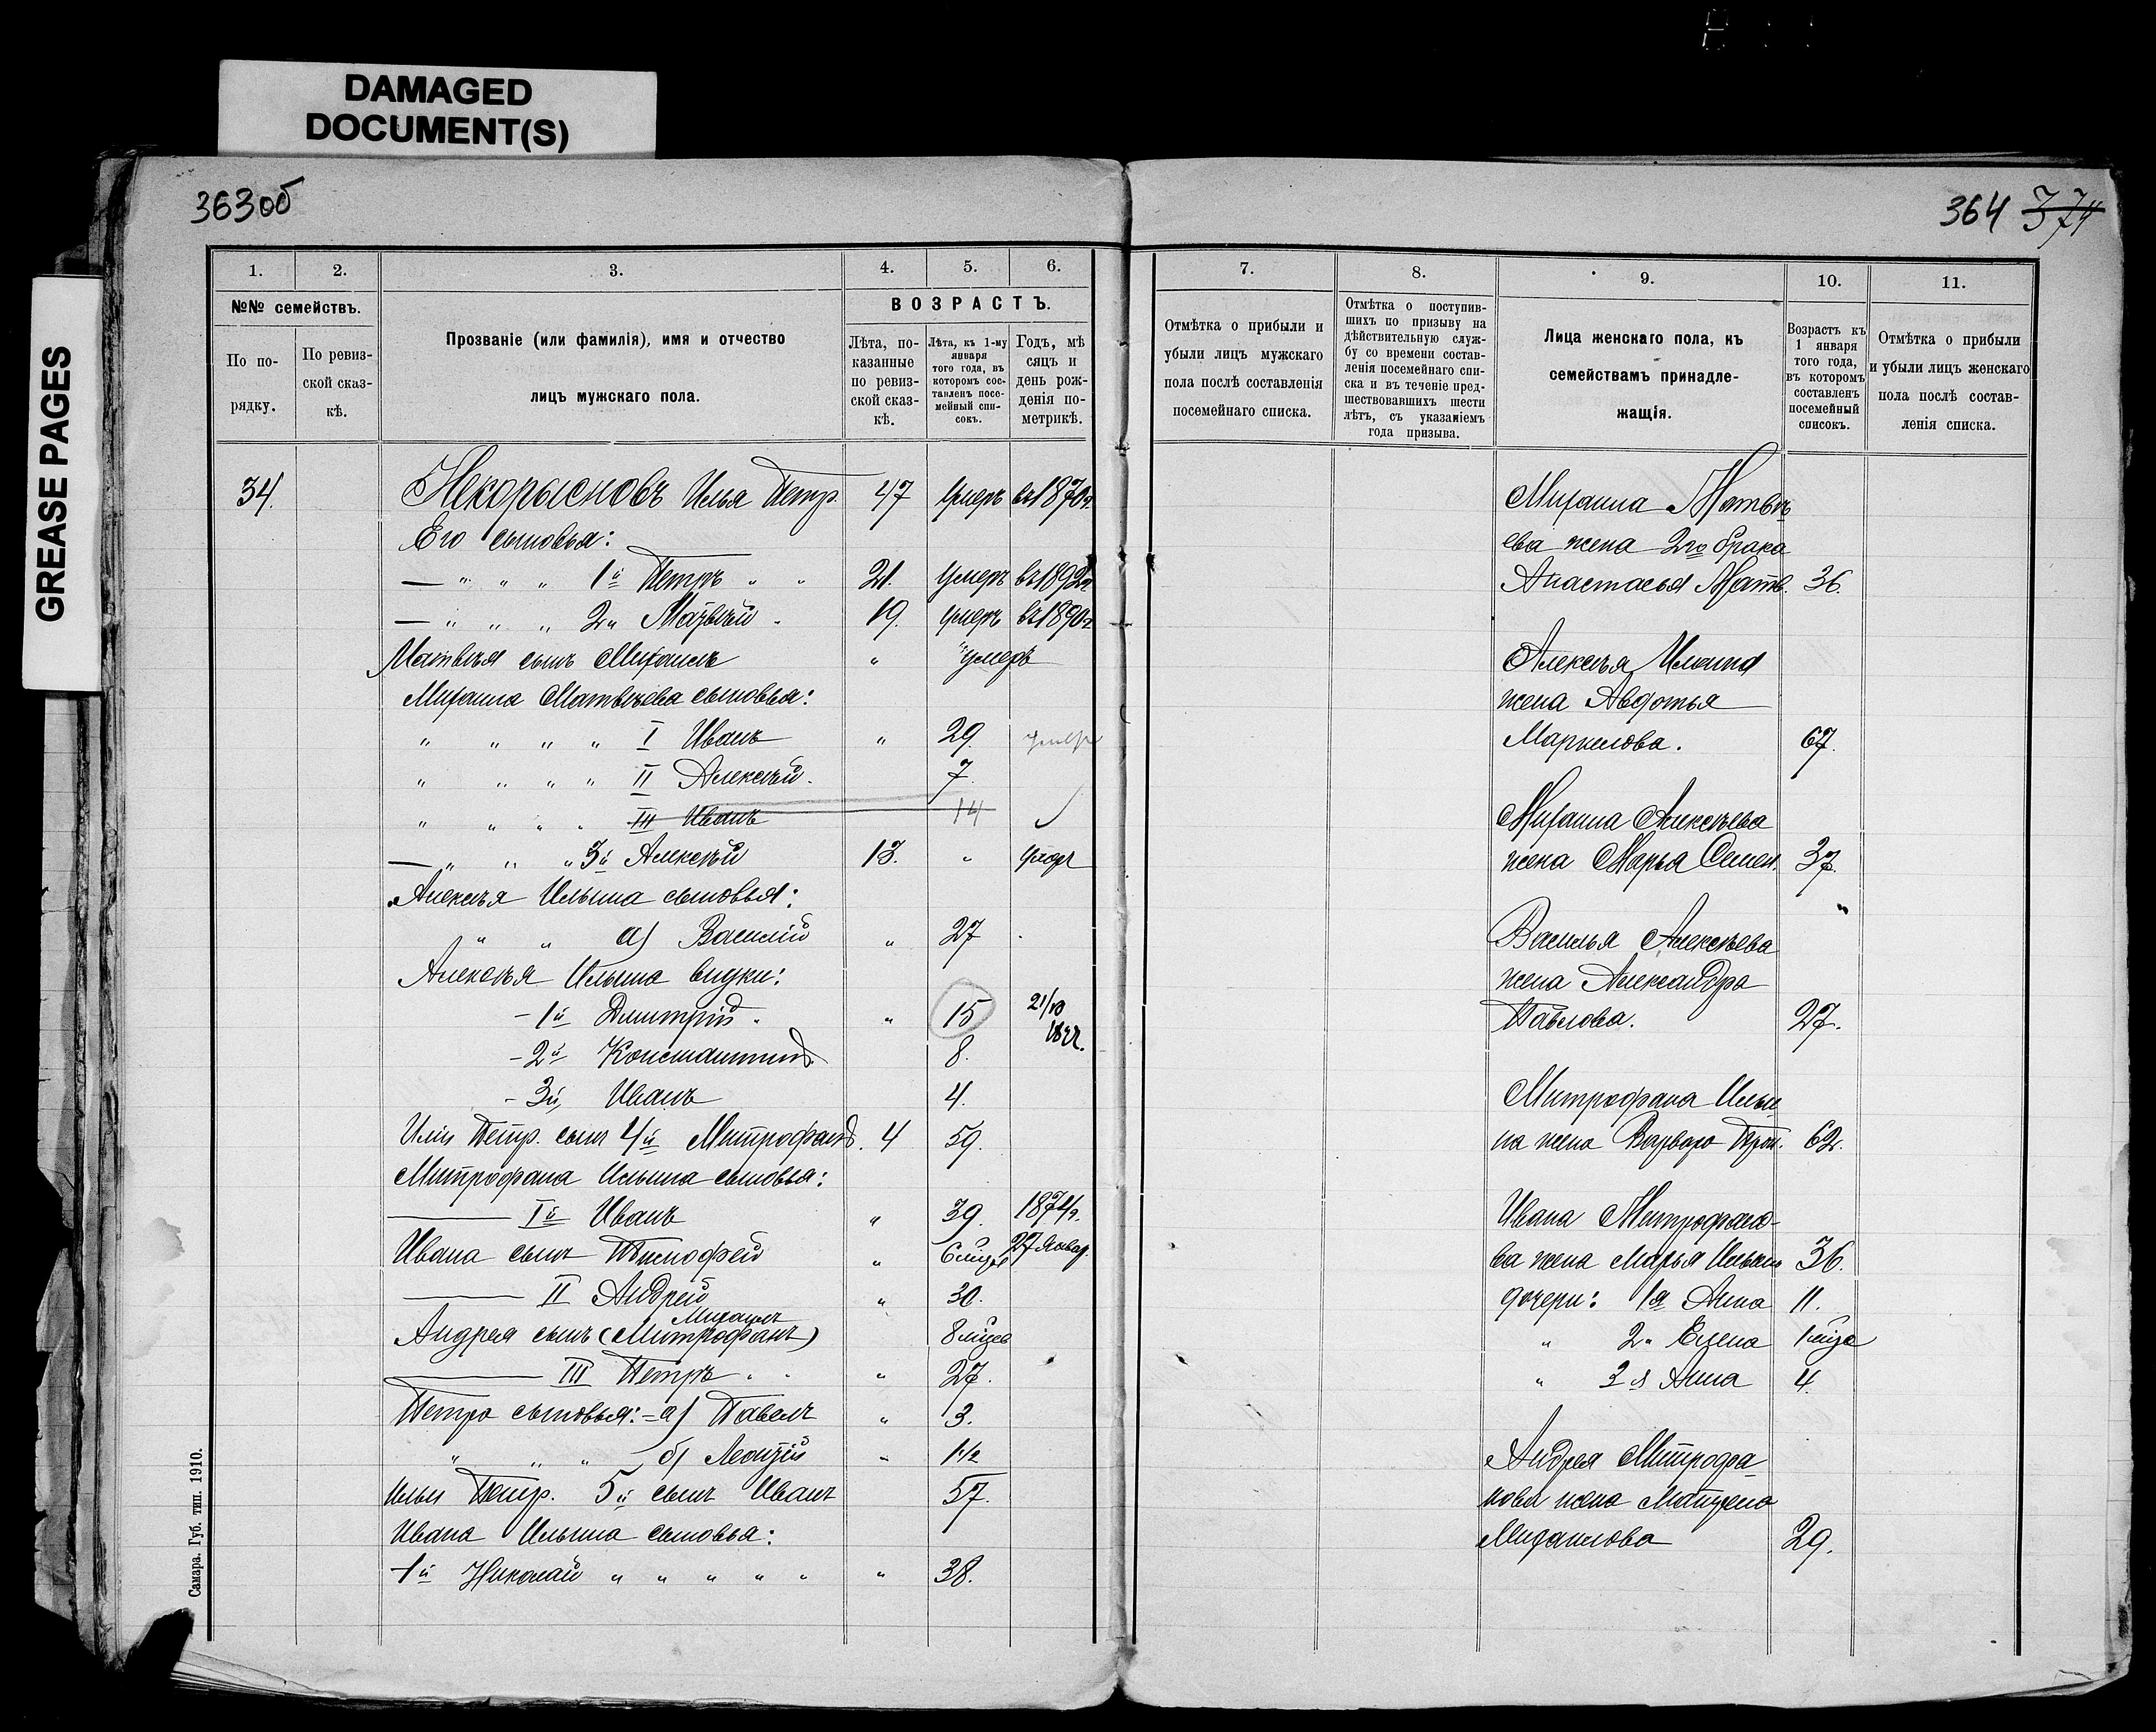 DAMAGED
DOCUMENT(S)
GREASE PAGES
363об
364 374
1.
2.
3.
4.
5.
6.
№№ семействъ.
По по-
рядку.
По ревиз-
ской сказ-
кѣ.
Прозваніе (или фамилія), имя и отчество
лицъ мужскаго пола.
ВОЗРАСТЪ.
Лѣта, по-
казанные
по ревиз-
ской сказ-
кѣ.
Лѣта, къ 1-му
января
того года, въ
которомъ сос-
тавленъ посе-
мейный спи-
сокъ.
Годъ, мѣ
сяцъ и
день рож-
денія по-
метрикѣ.
34. Некорысновъ Илья Петр. 47 умеръ въ 1870г.
Его сыновья:
— " " " 1й Петръ " " 21. умеръ въ 1892г
— " " " 2й Матвѣй " 19. умеръ въ 1890г
Матвѣя сынъ Михаилъ " умеръ
Михаила Матвѣева сыновья:
" " " " I Иванъ " 29. умеръ
" " " " II Алексѣй. 7.
" " " " III Иванъ 14
— " " " 3й Алексѣй 13. " умеръ
Алексѣя Ильина сыновья:
" " а) Василій " 27
Алексѣя Ильина внуки:
-1й Дмитрій. " 15 21/10
-2й Константинъ 8.
-3й, Иванъ 4.
Ильи Петр. сынъ 4й Митрофанъ. 4 59.
Митрофана Ильина сыновья:
— Iй Иванъ " 39. 1874г.
Ивана сынъ Тимофей " 6 мѣс 27 Январ.
— II Андрей " 30.
Михаилъ
Андрея сынъ (Митрофанъ) 8 мѣсяц
— III Петръ " " " 27.
Петра сыновья: - а) Павелъ " 3.
" " " б) Леонтій " 1 1/2
Ильи Петр. 5й сынъ Иванъ 57.
Ивана Ильина сыновья:
1й Николай " " " " " " 38.
Самара. Губ. тип. 1910.
7.
8.
9.
10.
11.
Отмѣтка о прибыли и
убыли лицъ мужскаго
пола послѣ составленія
посемейнаго списка.
Отмѣтка о поступив-
шихъ по призыву на
дѣйствительную служ-
бу со времени состав-
ленія посемейнаго спи-
ска и въ теченіе пред-
шествовавшихъ шести
лѣтъ, съ указаніемъ
года призыва.
Лица женскаго пола, къ
семействамъ принадле-
жащія.
Возрастъ къ
1 января
того года,
въ которомъ
составленъ
посемейный
списокъ.
Отмѣтка о прибыли
и убыли лицъ женскаго
пола послѣ состав-
ленія списка.
Михаила Матвѣ
ева жена 2го брака
Анастасья Матв. 36.
Алексѣя Ильина
жена Авдотья
Маркелова. 67.
Михаила Алексѣева
жена Марья Семен. 37.
Василья Алексѣева
жена Александра
Павлова. 27.
Митрофана Ильи
на жена Варвара 62.
Ивана Митрофано-
ва жена Марья Ильин 36.
дочери: 1я Анна 11.
" 2я Елена 1 мѣся
" 3я Анна 4.
Андрея Митрофа-
нова жена Матрена
Михайлова 29.